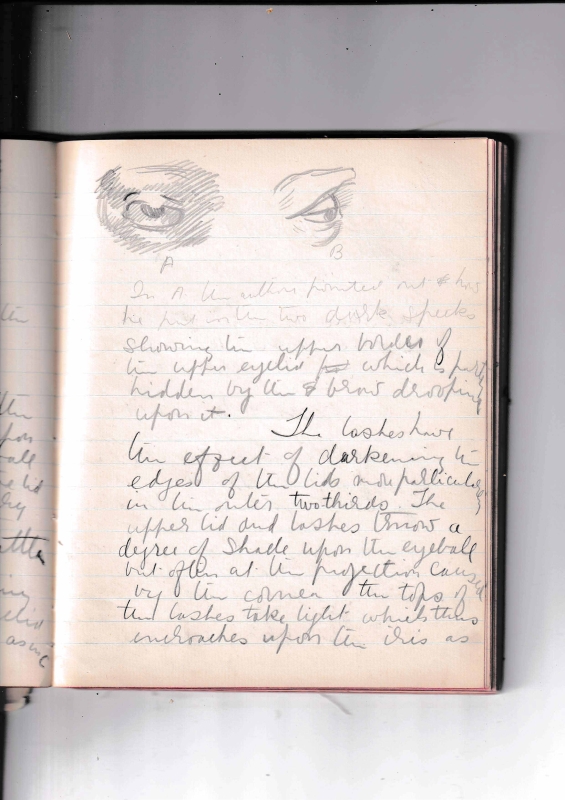 A B
In A the author pointed out & how
he put in the two dark specks
showing the upper border of
the upper eyelid which is partly
hidden by the brow drooping
upon it.
The lashes have
the effect of darkening the
edges of the lids more particularly
in the outer two thirds. The
upper lid and lashes throw a
degree of shade upon the eyeball
but often at the projection caused
by the cornea the tops of
the lashes take light whilst this
encroaches upon the iris as